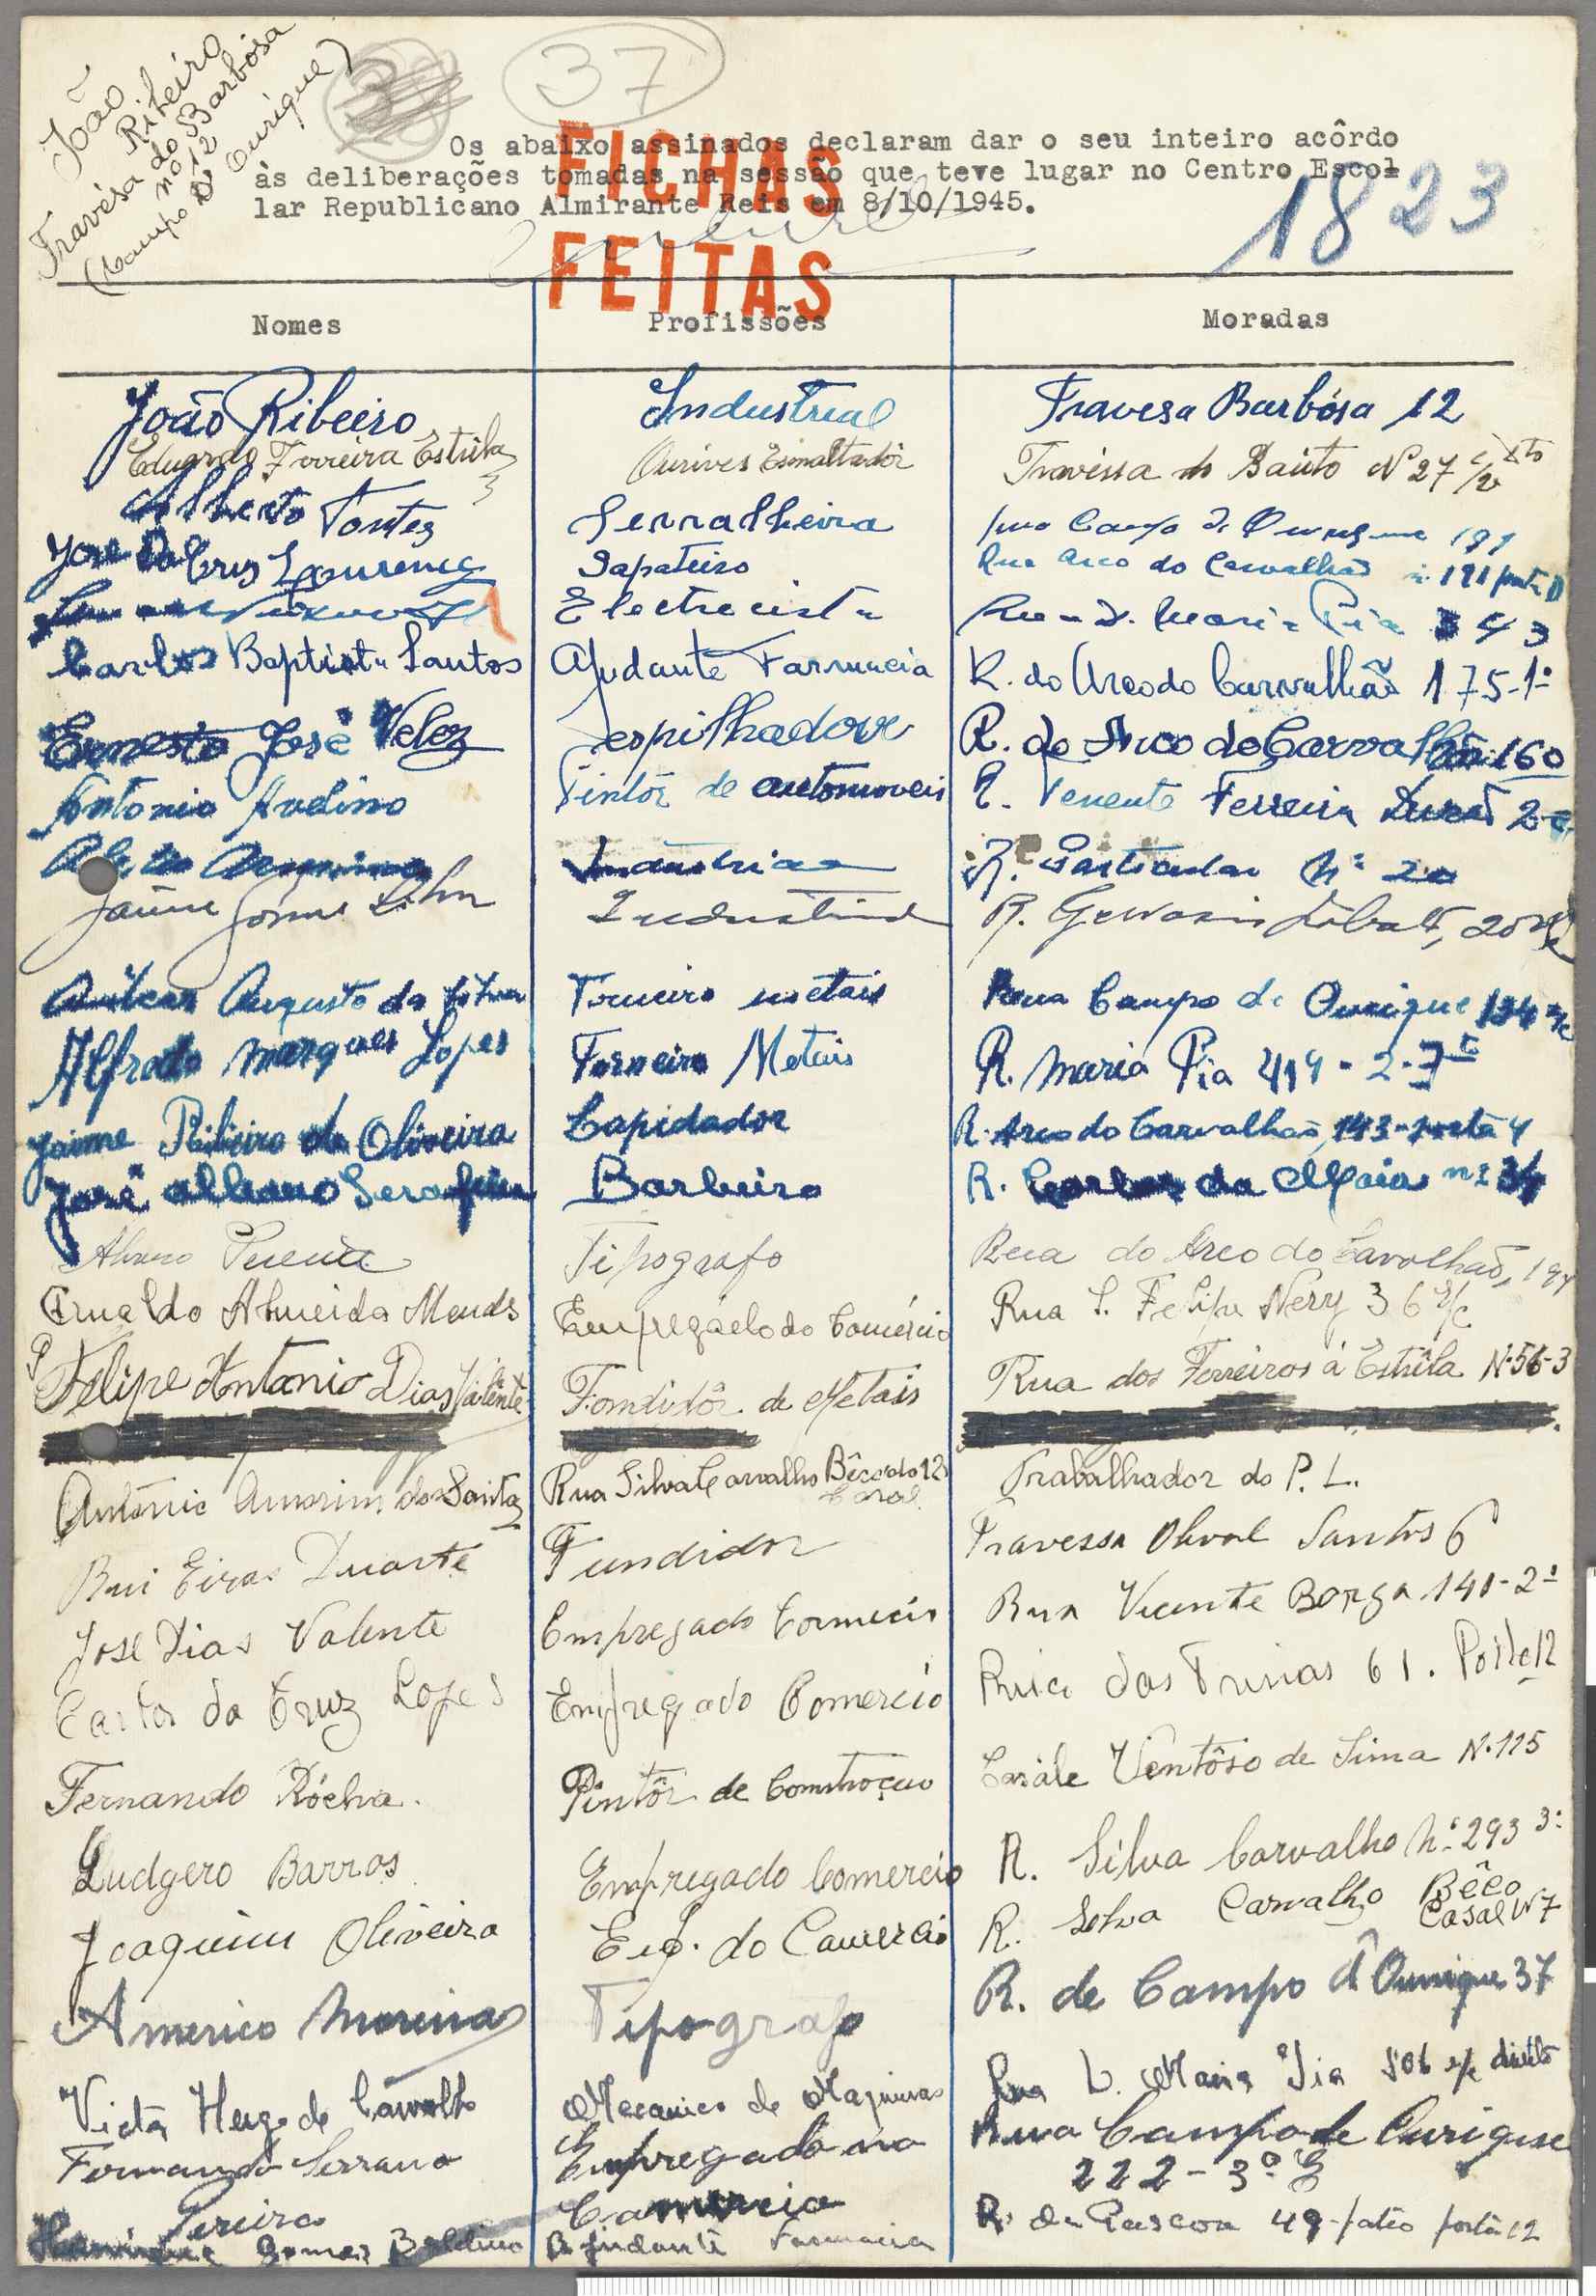 João
Ribeiro
Travésa do Barbósa
nº 12
(Campo de Ourique)
37
Os abaixo assinados declaram dar o seu inteiro acôrdo
às deliberações tomadas na sessão que teve lugar no Centro Escol
lar Republicano Almirante Reis em 8/10/1945.
FICHAS
FEITAS
1823
Nomes Profissões Moradas
João Ribeiro Industrial Travesa Barbósa 12
Eduardo Ferreira Estrela Ourives Esmaltadôr Travéssa do Bauto Nº 27
Alberto Fontes Serralheiro Rua Campo de Ourique 191
José Da Cruz Lourenço Sapateiro Rua Arco do Carvalhão n. 191 porta
Electrecista Rua D. Maria Pia 343
Carlos Baptista Santos Ajudante Farmacia R. do Arco do Carvalhão 175-1º
Ernesto José Velez espilhadove R. do Arco do Carvalhão 160
Antonio Avelino Pintôr de automoveis R. Tenente Ferreira Durão 2
Industrial R. Particular Nº 20
Jaime Industrial R. Gervasio Lobato, 20
Augusto da Silva Torneiro metais Rua Campo de Ourique 134
Alfredo Marques Lopes Torneiro Metais R. Maria Pia 414-2-
Jaime Ribeiro de Oliveira Lapidador R. Arco do Carvalhão, 143-porta 4
José Albano Serafim Barbeiro R. Carlos da Maia nº 34
Alvaro Pereira Tipografo Rua do Arco do Carvolhão,
Arnaldo Almeida Mends Empregado do Comércio Rua S. Felipe Nery 36 r/c
Felipe Antonio Dias Valente Fondidôr de Metais Rua dos Ferreiros á Estrêla N-56-3
António Amorim dos Santos Rua Silva Carvalho Bêco do 12 Casal Trabalhador do P. L.
Rui Eiras Duarte Fundidor Travessa Olival Santos 6
José Dias Valente Empregado Comercio Rua Vicente Borga 141-2º
Carlos da Cruz Lopes Empregado Comercio Rua das Trinas 61. Porte 12
Fernando Rócha. Pintôr de Construçao Casále Ventôso de Sima N.115
Ludgero Barros Empregado Comercio R. Silva Carvalho Nº 293 3º
Joaquim Oliveira Emp. do Comercio R. Selva Carvalho Bêco Casal Nº 7
Americo Moreira Tipografo R. de Campo d'Ourique 37
Victor Hugo de Carvalho Mecanico de Maquinas Rua D. Maria Pia 506 r/c direito
Fernando Serrano Pereira Empregado no Comercio Rua Campo de Ourique
222-3º E
Gomes Baldino Ajudante Farmacia R. da Pascoa 49-patio porta 12